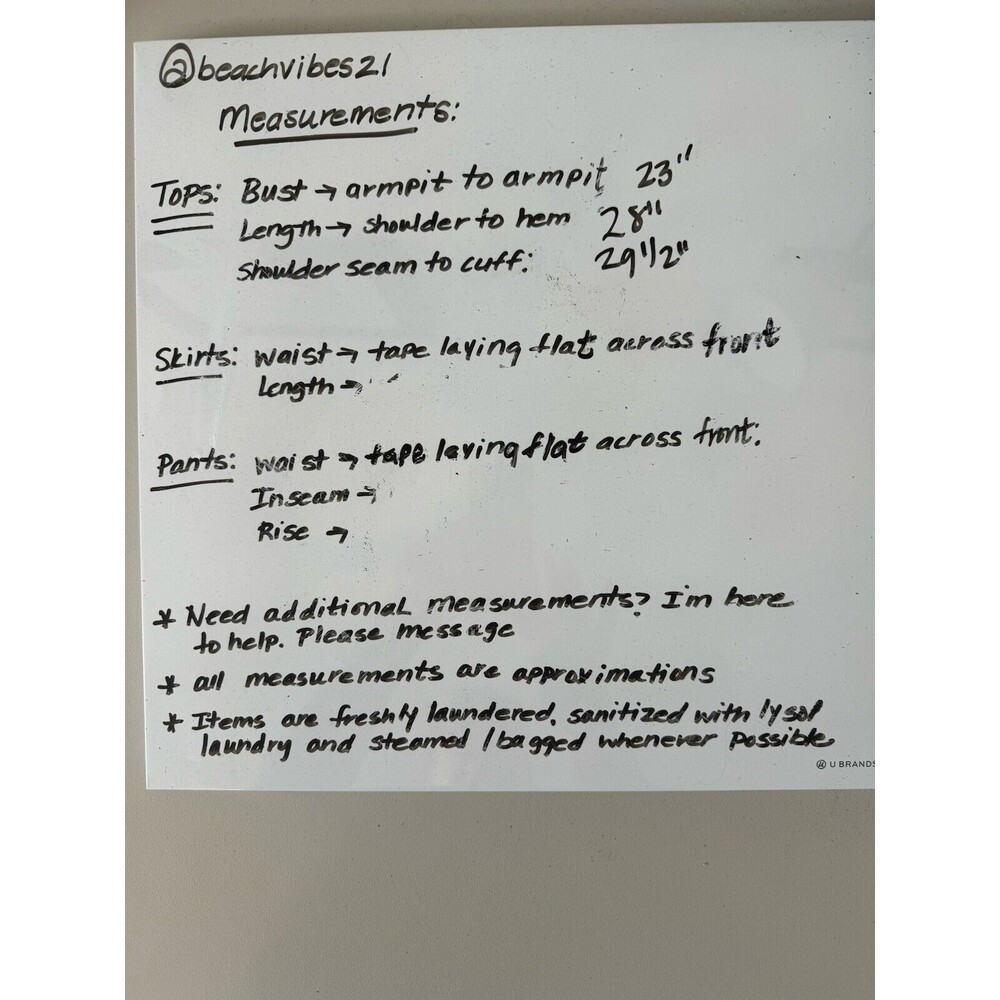 @beachvibes21
Measurements:
Tops: Bust → armpit to armpit 23"
Length → shoulder to hem 28"
shoulder seam to cuff: 29 1/2"
Skirts: waist → tape laying flat across front
Length →
Pants: waist → tape laying flat across front:
Inseam →
Rise →
* Need additional measurements? I'm here
to help. Please message
* all measurements are approximations
* Items are freshly laundered, sanitized with lysol
laundry and steamed / bagged whenever possible
U BRANDS